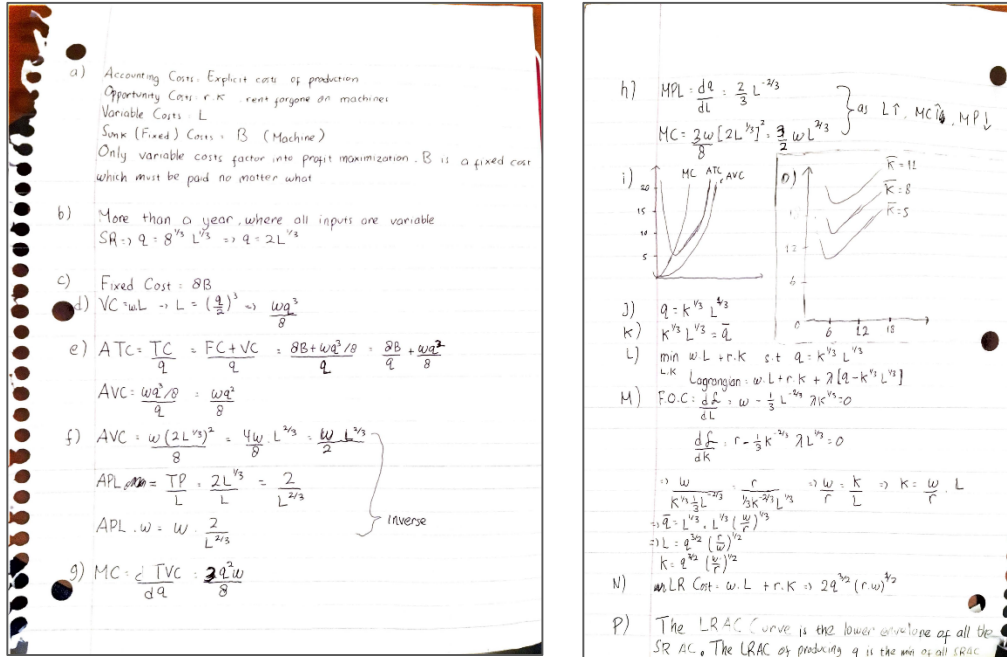 a) Accounting Costs: Explicit costs of production
Opportunity Costs: r.K rent forgone on machines
Variable Costs: L
Sunk (Fixed) Costs = B (Machine)
Only variable costs factor into profit maximization. B is a fixed cost
which must be paid no matter what
b) More than a year, where all inputs are variable
SR => q = 8^{1/3} L^{1/3} => q = 2L^{1/3}
c) Fixed Cost = 8B
d) VC = w.L → L = (q/2)^3 => wq^3/8
e) ATC = TC/q = FC+VC/q = 8B+wq^3/8/q = 8B/q + wq^2/8
AVC = wq^3/8/q = wq^2/8
f) AVC = w(2L^{1/3})^2/8 = 4w/8 . L^{2/3} = w L^{2/3}/2
APL = TP/L = 2L^{1/3}/L = 2/L^{2/3}
APL . w = w . 2/L^{2/3}
inverse
g) MC = d TVC/dq = 3q^2w/8
h) MPL = dq/dL = 2/3 L^{-2/3}
MC = 3w/8 [2L^{1/3}]^2 = 3/2 wL^{2/3}
as L↑, MC↑, MP↓
i) 20 15 10 5
MC ATC AVC
O) K̄=11
K̄=8
K̄=5
12
6
0 6 12 18
J) q = K^{1/3} L^{1/3}
K) K^{1/3} L^{1/3} = q̄
L) min w.L + r.K s.t q = K^{1/3} L^{1/3}
L.K
Lagrangian = w.L + r.K + λ[q-K^{1/3}L^{1/3}]
M) F.O.C = dL/dL = w - 1/3 L^{-2/3} λK^{1/3} = 0
dL/dK = r - 1/3 K^{-2/3} λL^{1/3} = 0
=> w/K^{1/3} 1/3 L^{-2/3} = r/1/3 K^{-2/3} L^{1/3} => w/r = K/L => K = w/r . L
=> q̄ = L^{1/3} . L^{1/3} (w/r)^{1/3}
=> L = q^{3/2} (r/w)^{1/2}
K = q^{3/2} (w/r)^{1/2}
N) LR Cost = w.L + r.K => 2q^{3/2} (r.w)^{1/2}
P) The LRAC Curve is the lower envelope of all the
SR AC. The LRAC of producing q is the min of all SRAC